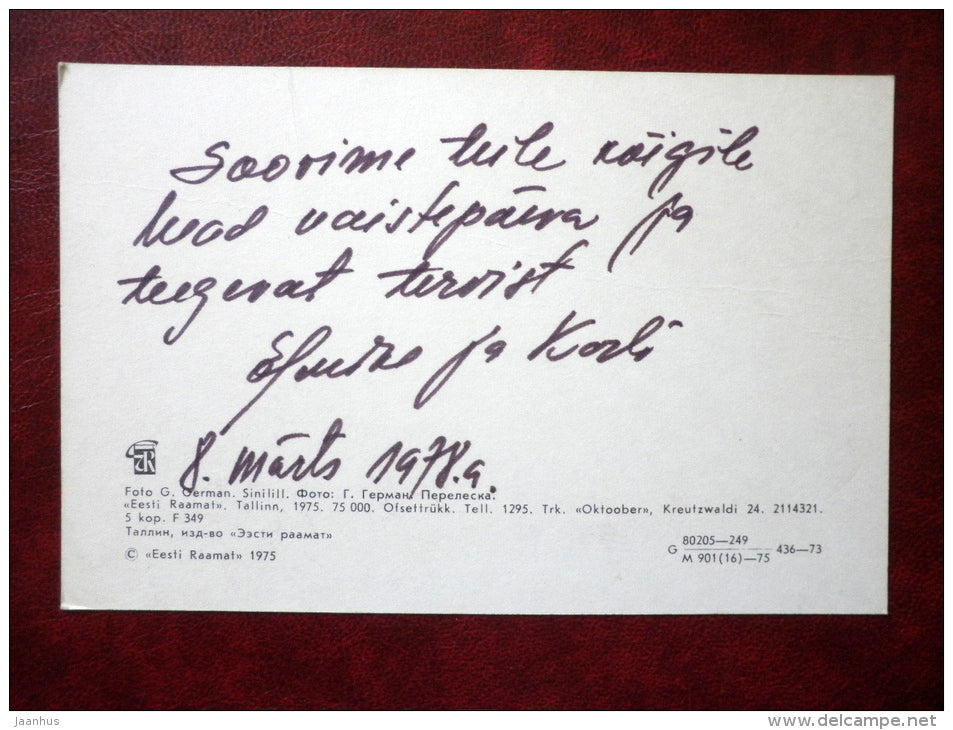 Soovime teile kõigile
head naistepäeva ja
tugevat tervist
ja
8. märts 1978.a.
Foto G. German. Sinilill. Фото: Г. Герман. Перелеска.
«Eesti Raamat». Tallinn, 1975. 75 000. Ofsettrükk. Tell. 1295. Trk. «Oktoober», Kreutzwaldi 24. 2114321.
5 kop. F 349
Таллин, изд-во «Ээсти раамат»
© «Eesti Raamat» 1975
G 80205—249 436—73
M 901(16)—75
Jaanhus
www.delcampe.net